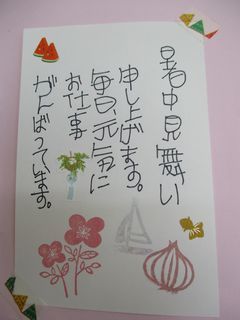 暑中見舞い
申し上げます。
毎日、元気に
お仕事
がんばっています。